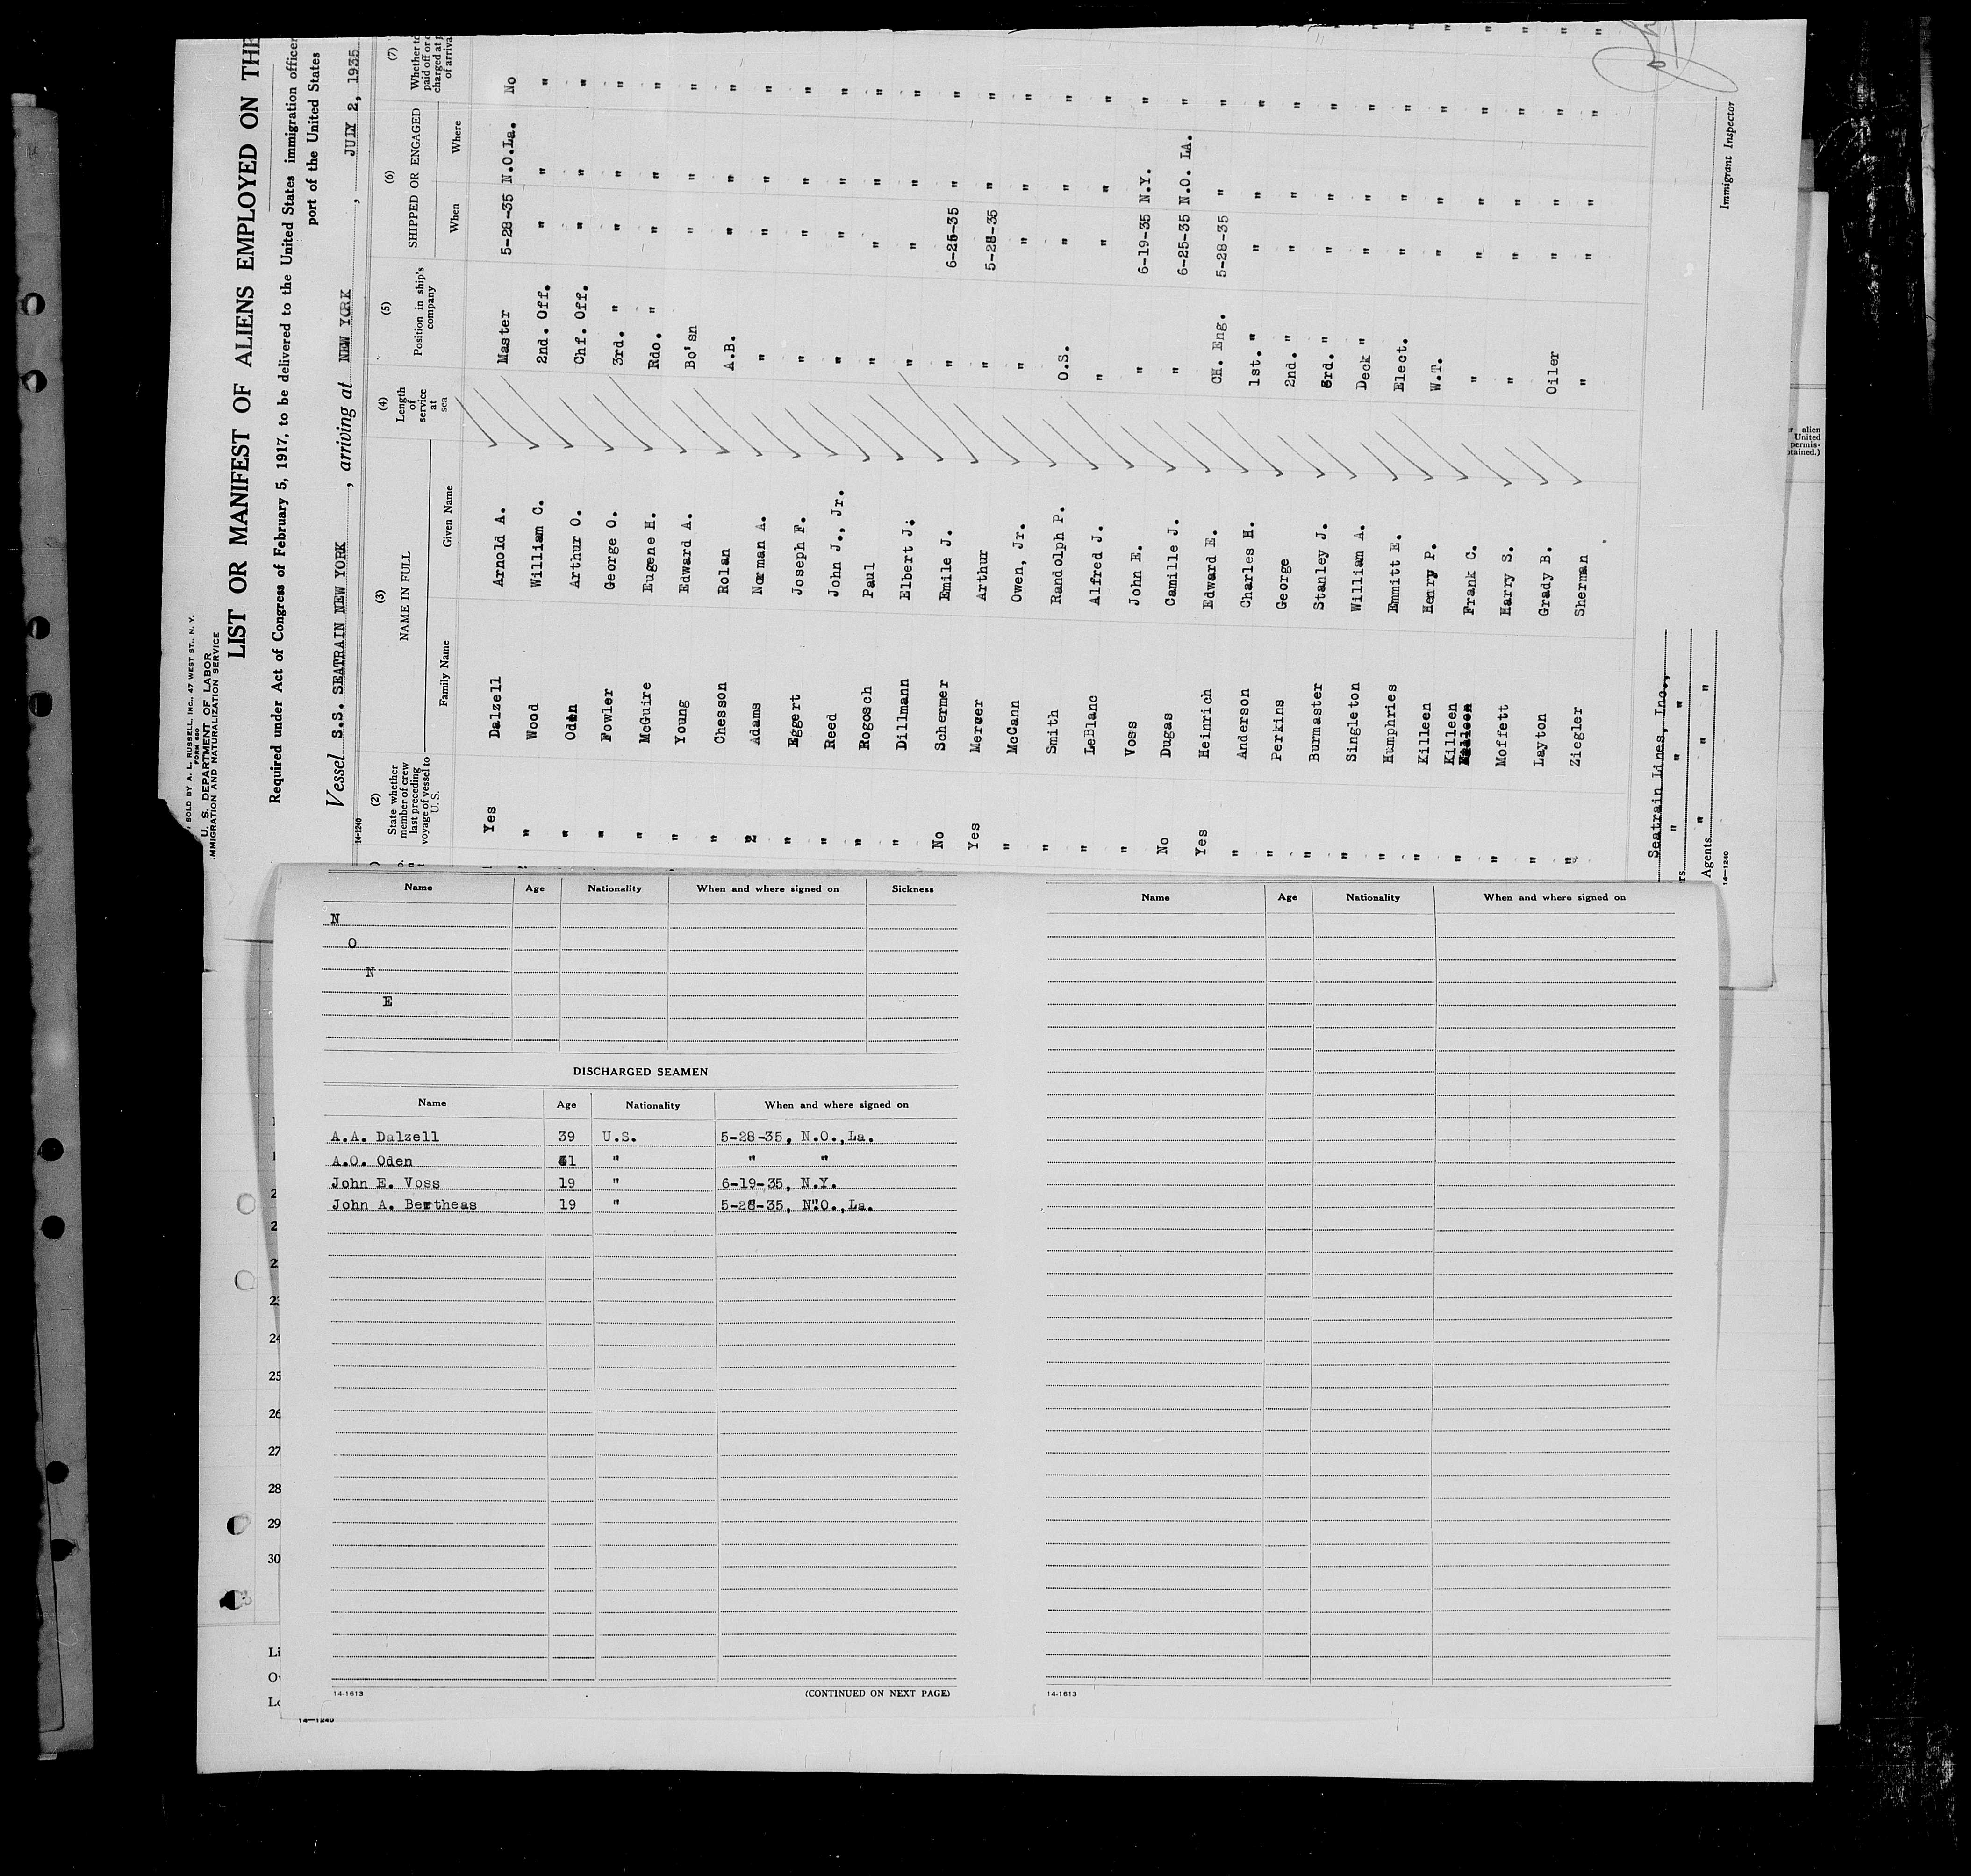 SOLD BY A. L. RUSSELL, INC., 47 WEST ST., N. Y.
FORM 680
U. S. DEPARTMENT OF LABOR
IMMIGRATION AND NATURALIZATION SERVICE
LIST OR MANIFEST OF ALIENS EMPLOYED ON THE
Required under Act of Congress of February 5, 1917, to be delivered to the United States immigration officer
port of the United States
Vessel S.S. SEATRAIN NEW YORK, arriving at NEW YORK, JULY 2, 1935
14-1240
(2) (3) (4) (5) (6) (7)
State whether member of crew last preceding voyage of vessel to U. S. NAME IN FULL Length of service at sea Position in ship's company SHIPPED OR ENGAGED Whether to paid off or charged at of arrival
Family Name Given Name When Where
Yes Dalzell Arnold A. Master 5-28-35 N.O.La. No
" Wood William C. 2nd. Off. " " "
" Oden Arthur O. Chf. Off. " " "
" Fowler George O. 3rd. " " " "
" McGuire Eugene H. Rdo. " " " "
" Young Edward A. Bo'sn " " "
" Chesson Rolan A.B. " " "
" Adams Norman A. " " " "
" Eggert Joseph F. " " " "
" Reed John J., Jr. " " " "
" Rogosch Paul " " " "
" Dillmann Elbert J. " " " "
No Schermer Emile J. " 6-25-35 " "
Yes Mercer Arthur " 5-28-35 " "
" McCann Owen, Jr. " " " "
" Smith Randolph P. O.S. " " "
" LeBlanc Alfred J. " " " "
" Voss John E. " 6-19-35 N.Y. "
No Dugas Camille J. " 6-25-35 N.O. LA. "
Yes Heinrich Edward E. CH. Eng. 5-28-35 " "
" Anderson Charles H. 1st. " " " "
" Perkins George 2nd. " " " "
" Burmaster Stanley J. 3rd. " " " "
" Singleton William A. Deck " " " "
" Humphries Emmitt E. Elect. " " "
" Killeen Henry P. W.T. " " "
" Killeen Frank C. " " " "
" Moffett Harry S. " " " "
" Layton Grady B. Oiler " " "
" Ziegler Sherman " " " "
Seatrain Lines, Inc.,
" " " "
Agents " " "
14-1240
Immigrant Inspector
r alien
United
permis-
otained.)
Name Age Nationality When and where signed on Sickness
N
O
N
E
DISCHARGED SEAMEN
Name Age Nationality When and where signed on
A.A. Dalzell 39 U.S. 5-28-35, N.O.,La.
A.O. Oden " " "
John E. Voss 19 " 6-19-35, N.Y.
John A. Bertheas 19 " 5-28-35, N.O.,La.
14-1613 (CONTINUED ON NEXT PAGE)
Name Age Nationality When and where signed on
14-1613
24
25
26
27
28
29
30
14-1240